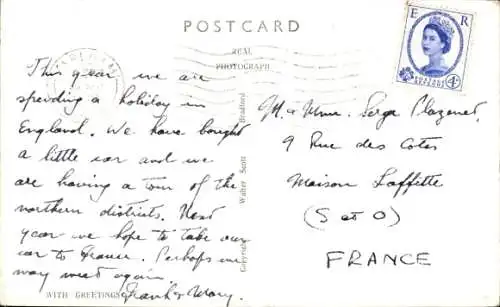 POSTCARD
REAL
PHOTOGRAPH
E R
POSTAGE
REVENUE
4D
This year we are
spending a holiday in
England. We have bought
a little car and we
are having a tour of the
northern districts. Next
year we hope to take our
car to France. Perhaps we
may meet again.
WITH GREETINGS Frank & Mary.
Copyright Walter Scott Bradford
M. & Mme. Serge Plazenet,
9 Rue des Cotes
Maison Laffette
(S et O)
FRANCE